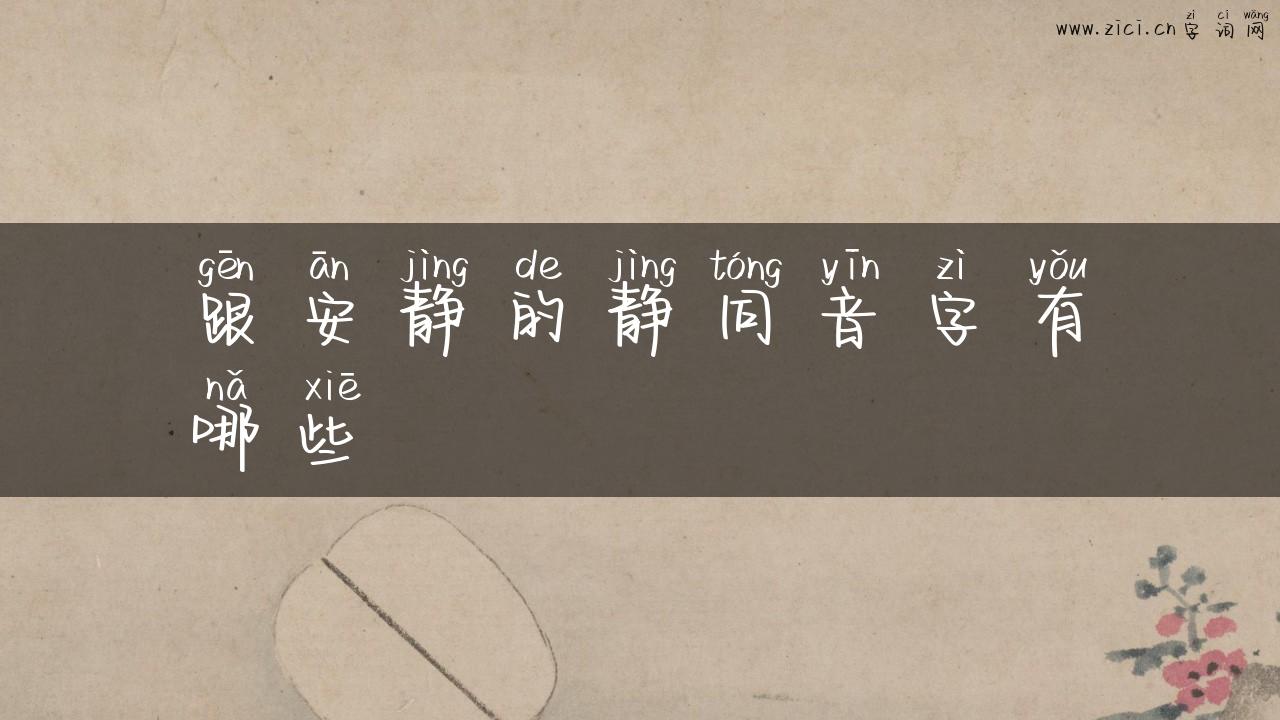 zì cí wǎng
www.zici.cn字词网
gēn ān jìng de jìng tóng yīn zì yǒu
跟安静的静同音字有
nǎ xiē
哪些